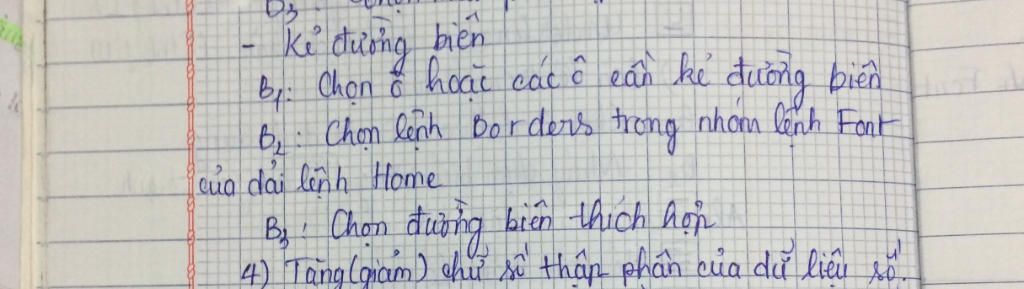 B3:
- Kẻ đường biên
B1: Chọn ô hoặc các ô cần kẻ đường biên
B2: Chọn lệnh Borders trong nhóm lệnh Font
của dải lệnh Home
B3: Chọn đường biên thích hợp
4) Tăng(giảm) chữ số thập phân của dữ liệu số.